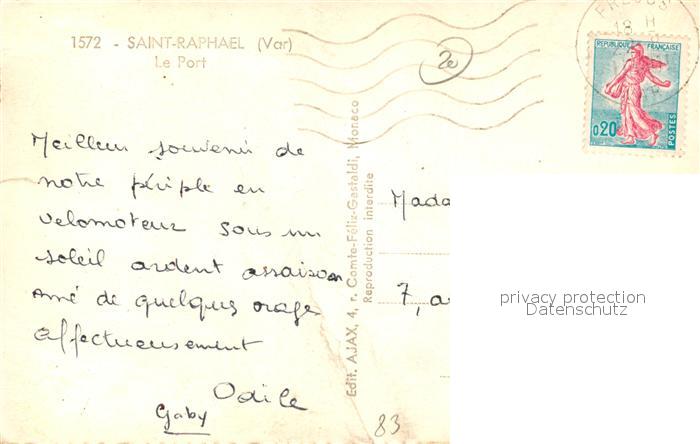 1572 - SAINT-RAPHAEL (Var)
Le Port
2e
FREJUS
18 H
REPUBLIQUE FRANÇAISE
0,20
POSTES
Meilleur souvenir de
notre périple en
velomoteur sous un
soleil ardent assaison
nné de quelques orage
affectueusement
Odile
Gaby
Edit. AJAX, 4, r. Comte-Félix-Gastaldi, Monaco
Reproduction interdite
Mada
7, a
privacy protection
Datenschutz
83